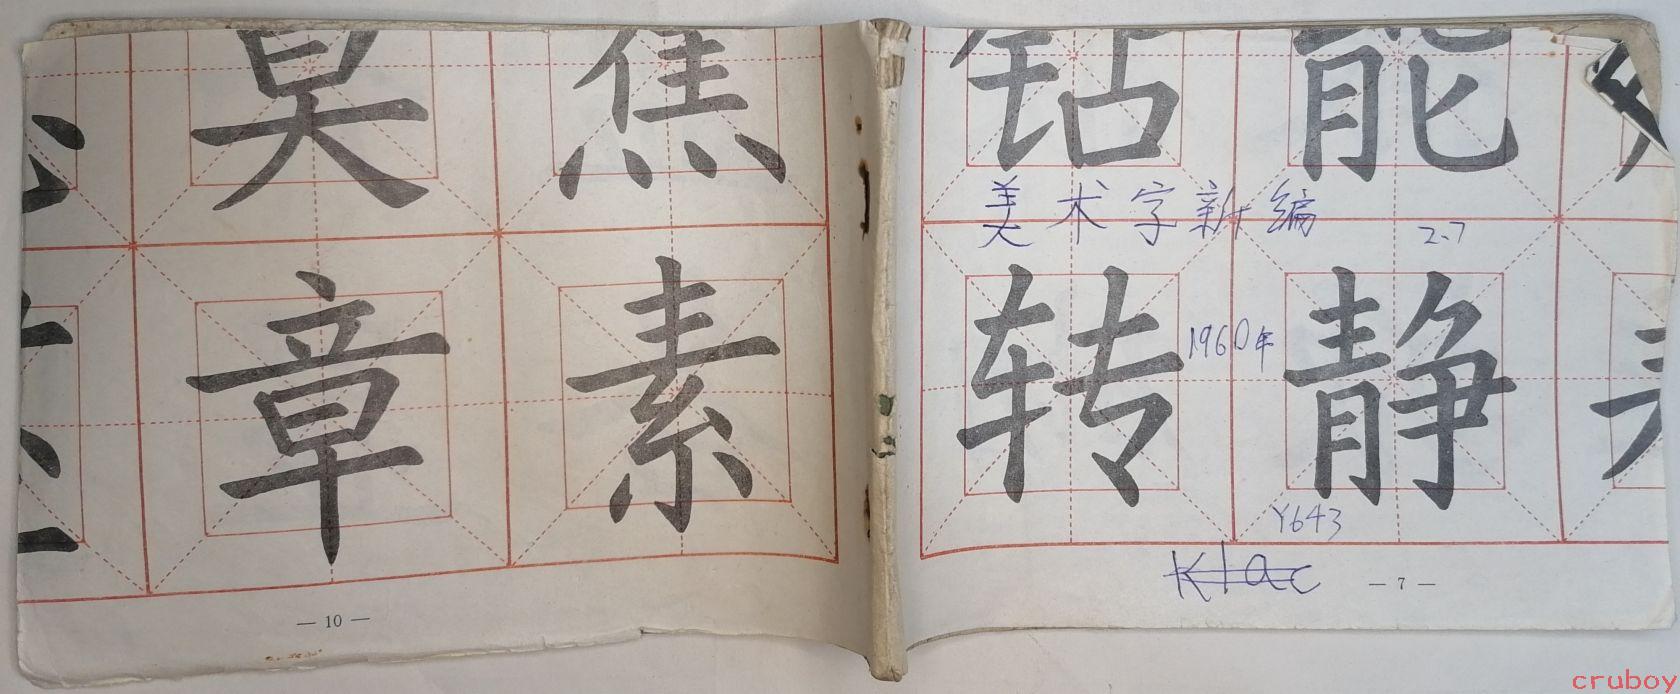 焦
章 素
— 10 —
钻 能
美术字新编
2.7
转 静
1960年
Y643
Klac
— 7 —
cruboy